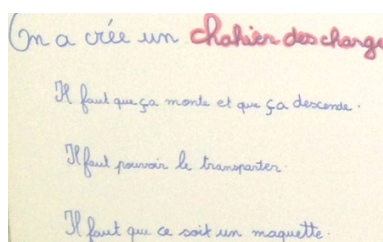 On a crée un chahier des charge
Il faut que ça monte et que ça descende.
Il faut pouvoir le transparter.
Il faut que ce soit un maquette.